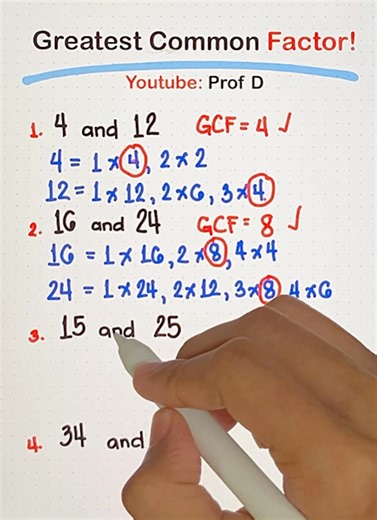 Greatest Common Factor!
Youtube: Prof D
1. 4 and 12 GCF = 4 ✓
4 = 1 × 4, 2 × 2
12 = 1 × 12, 2 × 6, 3 × 4
2. 16 and 24 GCF = 8 ✓
16 = 1 × 16, 2 × 8, 4 × 4
24 = 1 × 24, 2 × 12, 3 × 8, 4 × 6
3. 15 and 25
4. 34 and